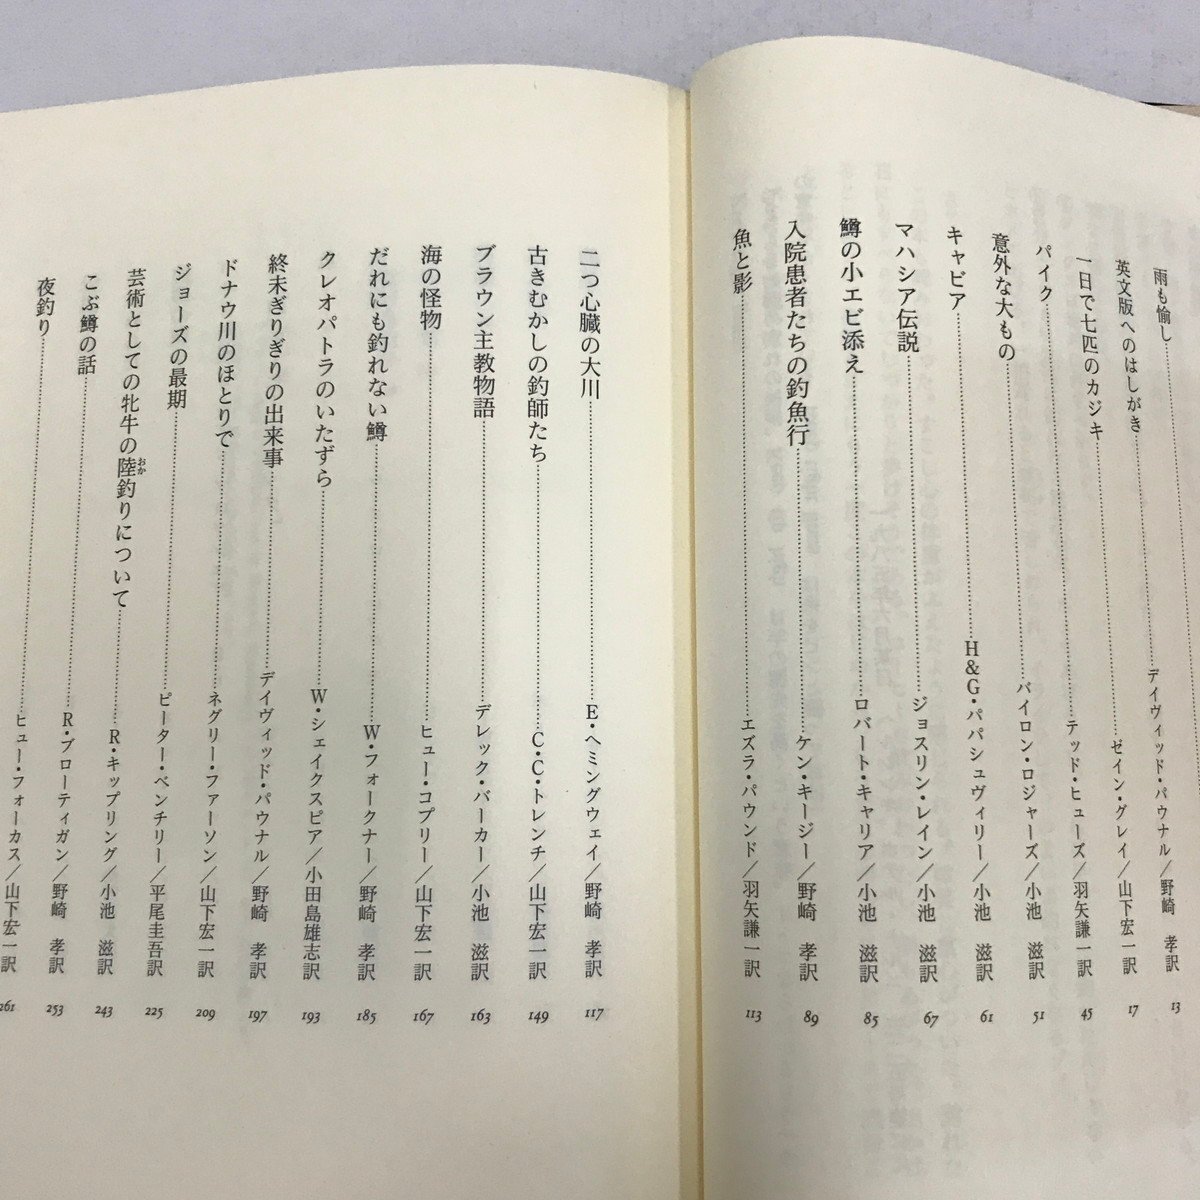 雨も愉し……デイヴィッド・パウナル／野崎 孝訳 13
英文版へのはしがき……ゼイン・グレイ／山下宏一訳 17
一日で七匹のカジキ……テッド・ヒューズ／羽矢謙一訳 45
パイク……バイロン・ロジャーズ／小池 滋訳 51
意外な大もの……H&G・パパシュヴィリー／小池 滋訳 61
キャビア……ジョスリン・レイン／小池 滋訳 67
マハシア伝説……ロバート・キャリア／小池 滋訳 85
鱒の小エビ添え……ケン・キージー／野崎 孝訳 89
入院患者たちの釣魚行……エズラ・パウンド／羽矢謙一訳 113
魚と影
二つ心臓の大川……E・ヘミングウェイ／野崎 孝訳 117
古きむかしの釣師たち……C・C・トレンチ／山下宏一訳 149
ブラウン主教物語……デレック・バーカー／小池 滋訳 163
海の怪物……ヒュー・コプリー／山下宏一訳 167
だれにも釣れない鱒……W・フォークナー／野崎 孝訳 185
クレオパトラのいたずら……W・シェイクスピア／小田島雄志訳 193
終末ぎりぎりの出来事……デイヴィッド・パウナル／野崎 孝訳 197
ドナウ川のほとりで……ネグリー・ファーソン／山下宏一訳 209
ジョーズの最期……ピーター・ベンチリー／平尾圭吾訳 225
芸術としての牝牛の陸釣りについて……R・キップリング／小池 滋訳 243
おか
こぶ鱒の話……R・ブローティガン／野崎 孝訳 253
夜釣り……ヒュー・フォーカス／山下宏一訳 261